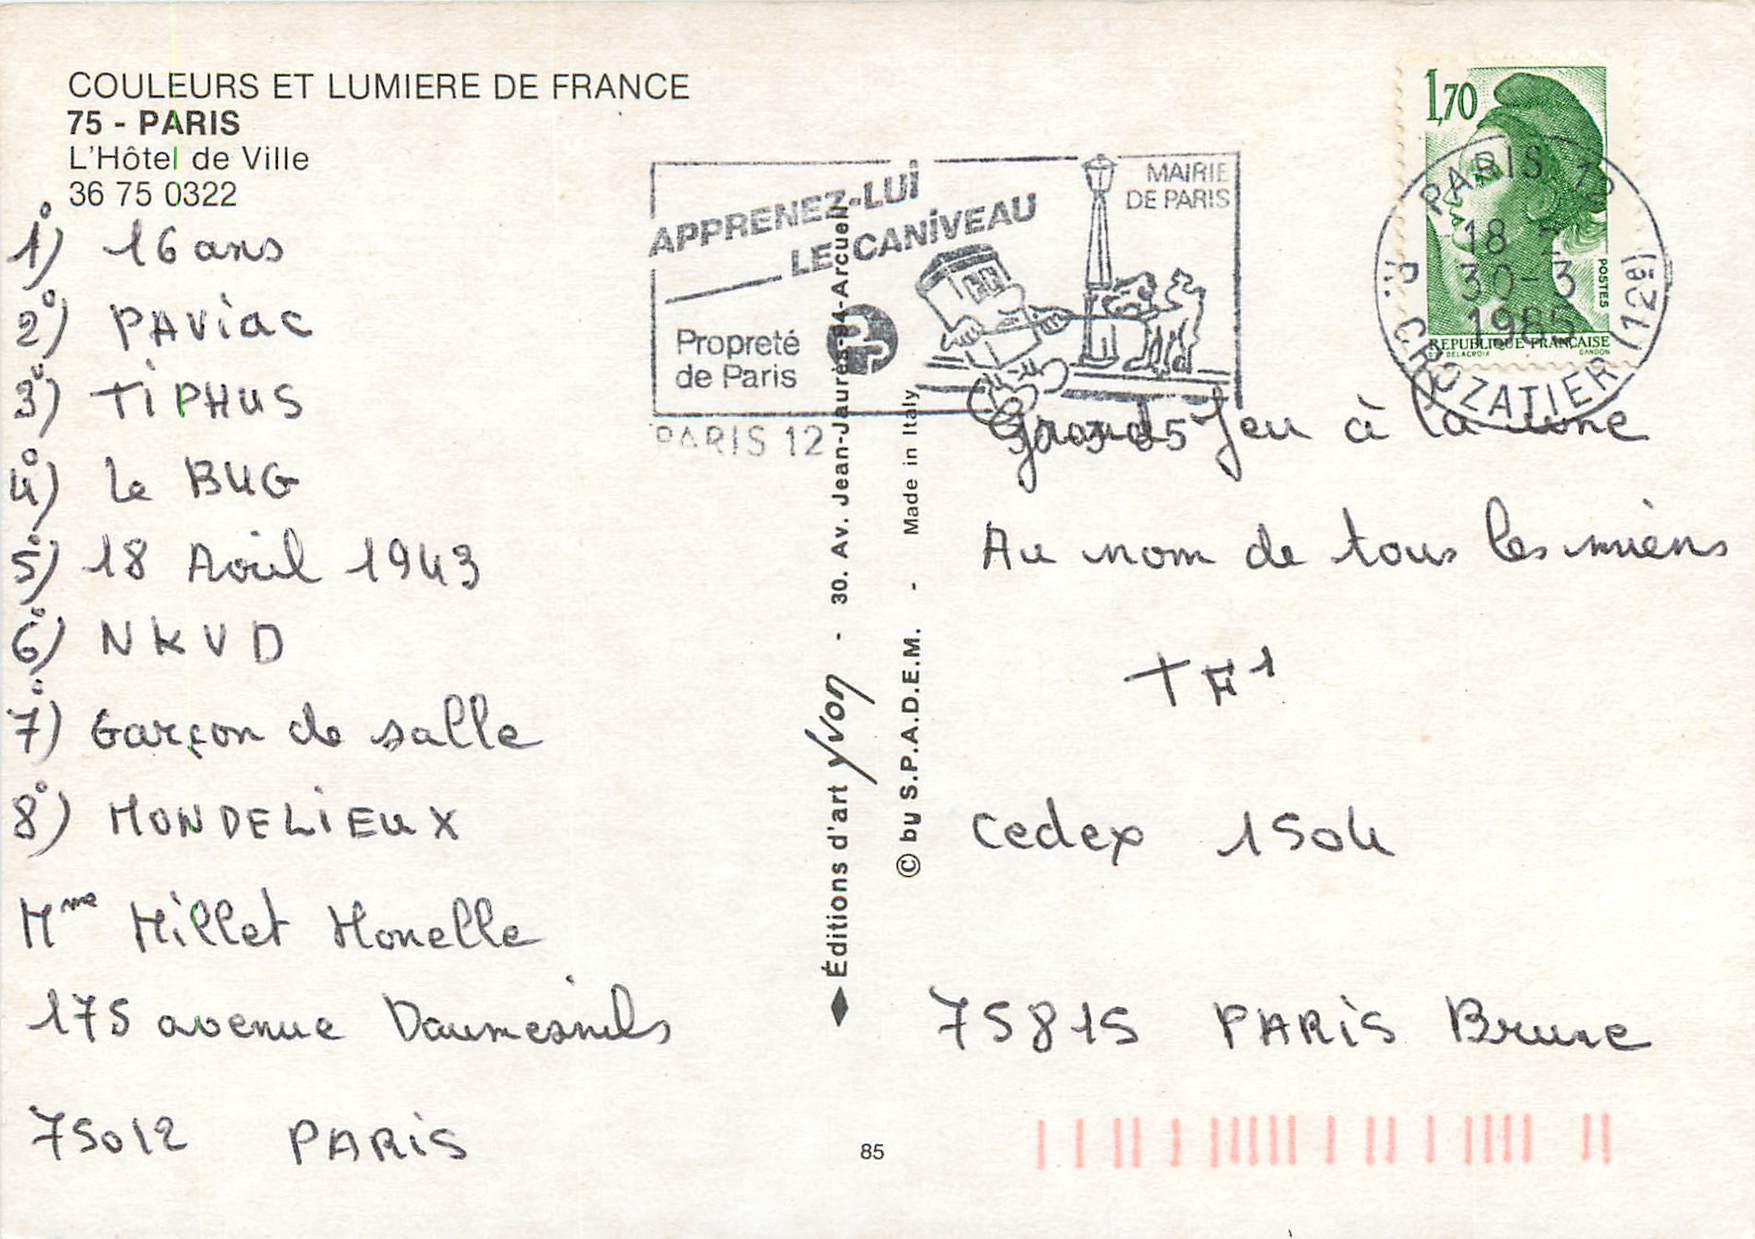 COULEURS ET LUMIERE DE FRANCE
75 - PARIS
L'Hôtel de Ville
36 75 0322
1°) 16 ans
2°) PAViac
3°) TiPHUS
4°) le BUG
5°) 18 Avril 1943
6°) NKVD
7°) Garçon de salle
8°) MONDELiEUX
Mme Millet Monelle
175 avenue Daumesnils
75012 PARiS
APPRENEZ-LUi
LE CANiVEAU
MAIRIE
DE PARIS
Propreté
de Paris
PARIS 12
Éditions d'art yvon - 30. Av. Jean-Jaurès-94-Arcueil
© by S.P.A.D.E.M. - Made in Italy
85
1,70
POSTES
REPUBLIQUE FRANÇAISE
DELACROIX GANDON
PARIS 12
18
30-3
1985
R. CROZATIER (12e)
Grand Jeu à la une
Au nom de tous les miens
TF1
Cedex 1504
75815 PARiS Brune